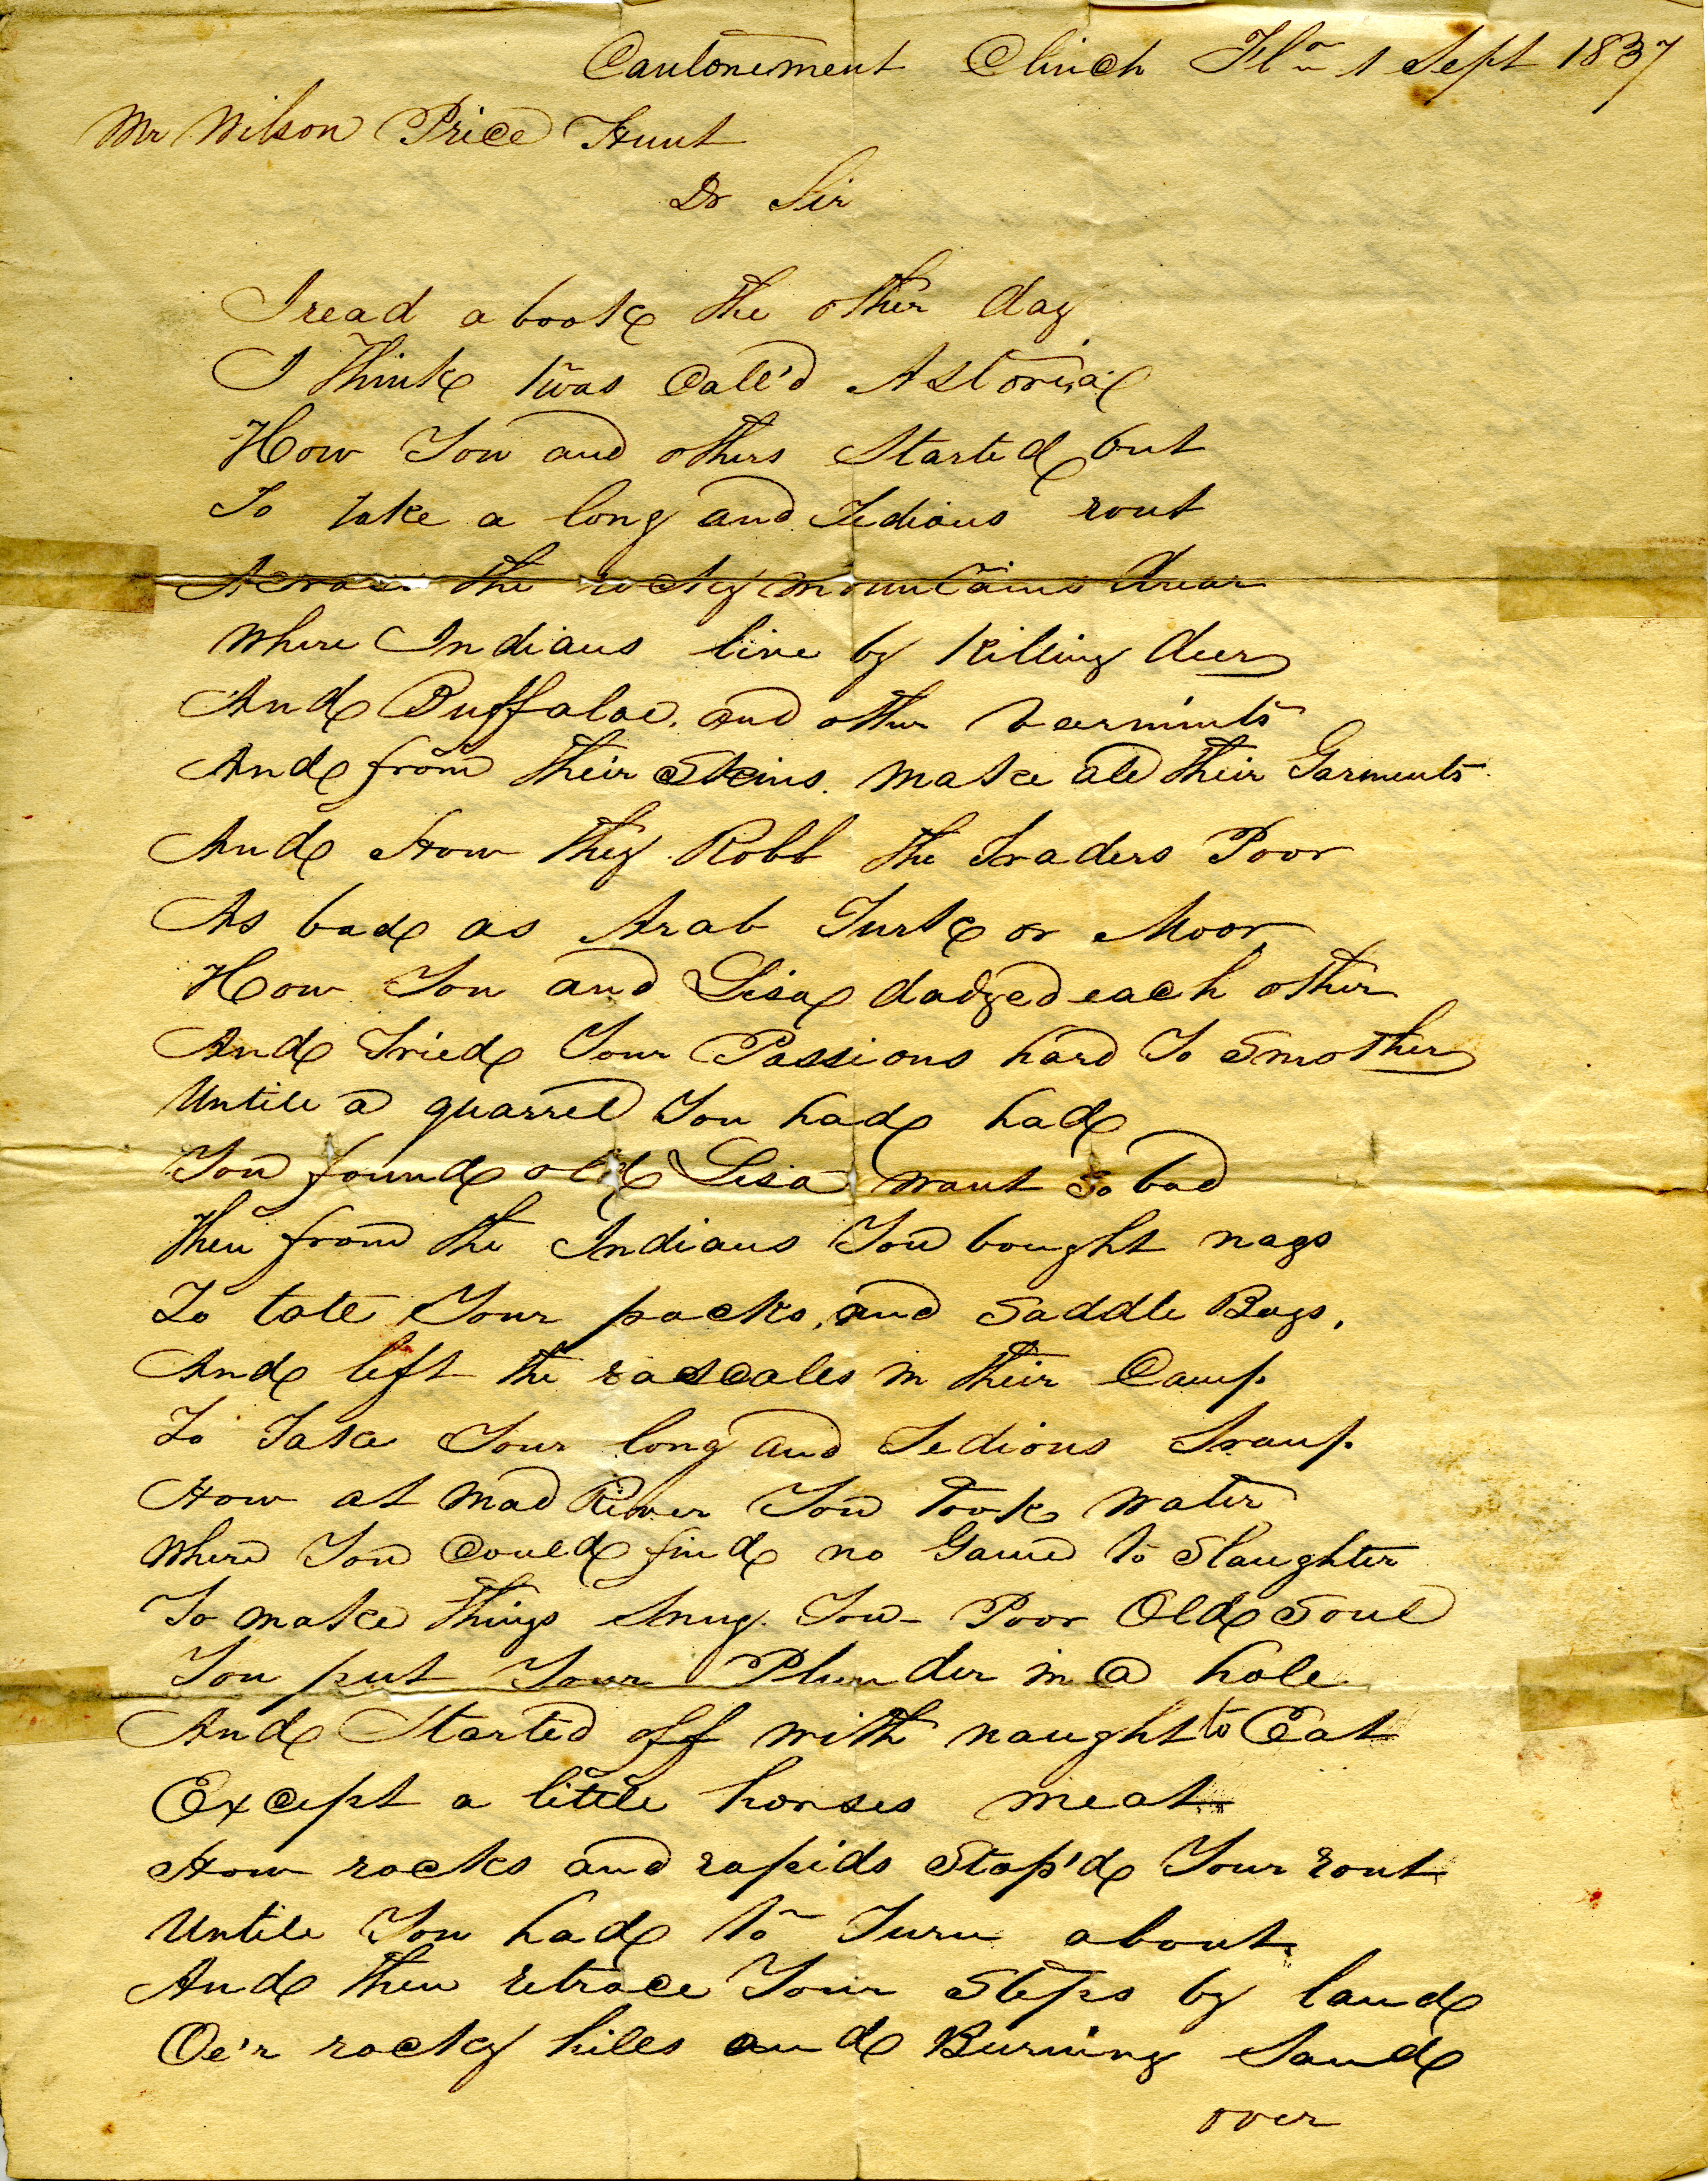 Cantonement Clinch Fla 1 Sept 1837
Mr Wilson Price Hunt
Dr Sir
I read a book the other day
I Think twas Call'd Astoria
How You and others Started out
To take a long and Tedious rout
Across the rocky mountains drear
Where Indians live by Killing deer
And Buffaloe. and other varmints
And from their Skins. make all their Garments
And How they Robb the Traders Poor
As bad as Arab Turk or Moor
How You and Lisa dodged each other
And Tried Your Passions hard To Smother
Untill a quarrel You had had
You found old Lisa want so bad
Then from the Indians You bought nags
To tote Your packs, and Saddle Bags,
And left the rascales in their Camp
To Take Your long and Tedious Tramp
How at Mad River You Took water
Where You Could find no Game to Slaughter
To make Things Snug. You - Poor Old Soul
You put Your Plunder in a hole
And Started off with naught to Eat
Except a little horses meat
How rocks and rapids Stop'd Your rout
Untill You had to Turn about
And then retrace Your Steps by land
Oe'r rocky hills and Burning Sand
over